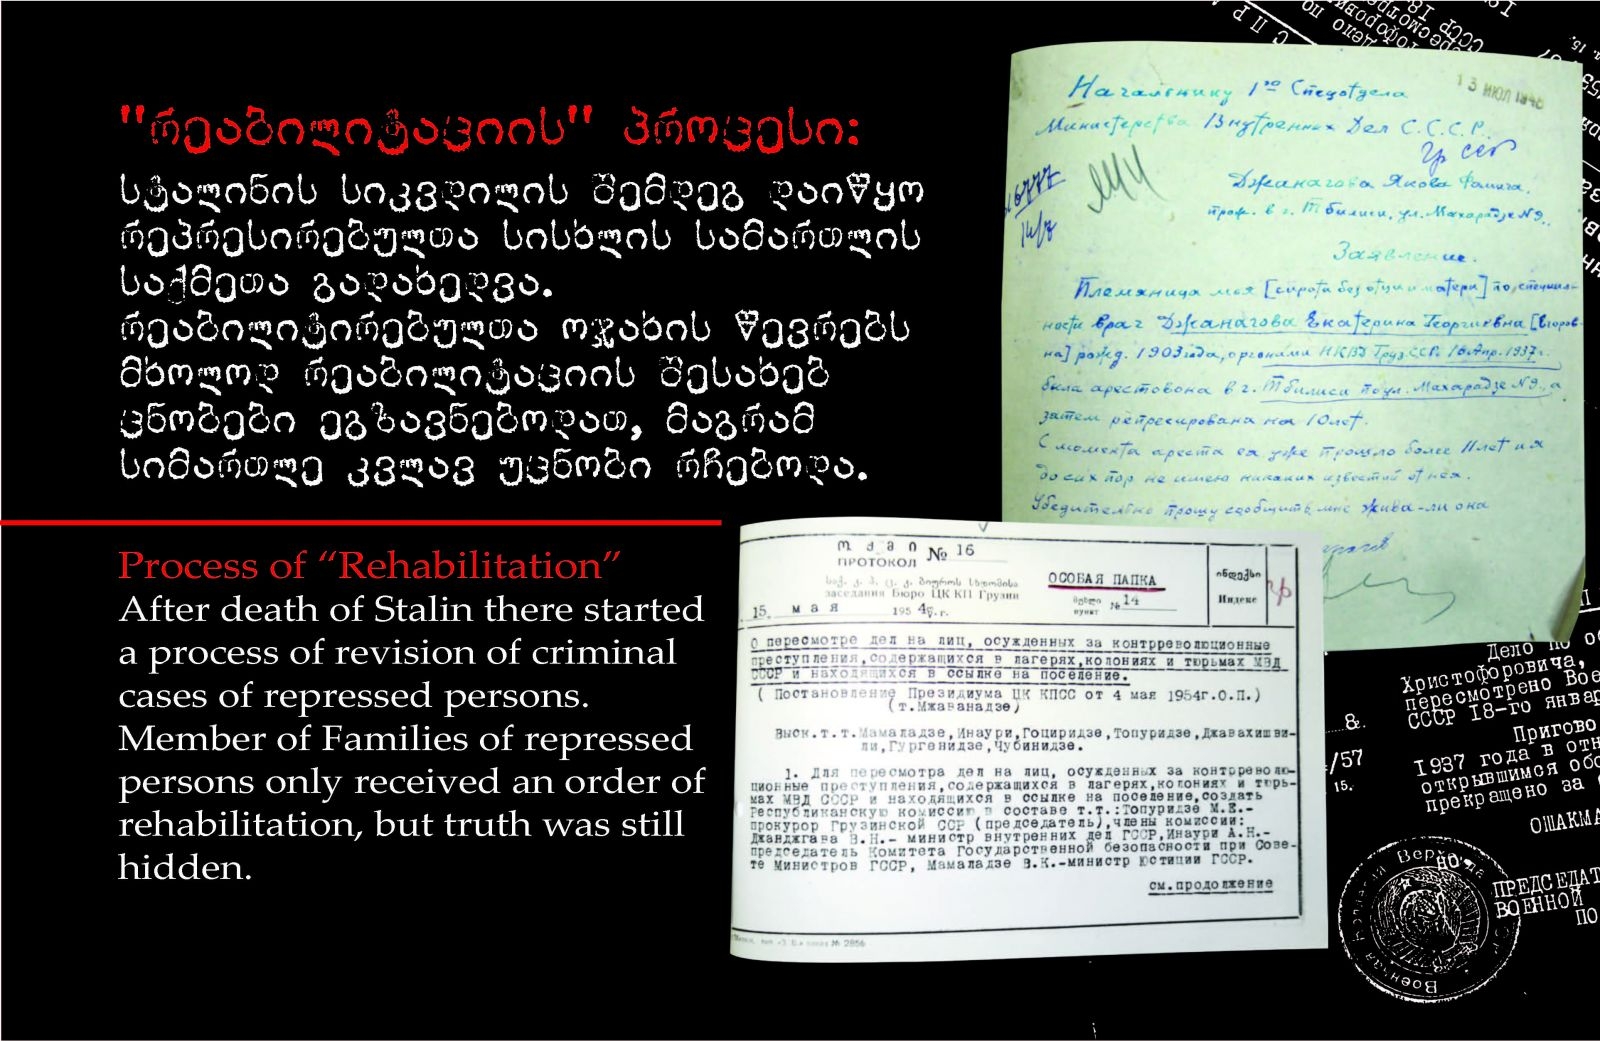 "რეაბილიტაციის" პროცესი:
სტალინის სიკვდილის შემდეგ დაიწყო
რეპრესირებულთა სისხლის სამართლის
საქმეთა გადახედვა.
რეაბილიტირებულთა ოჯახის წევრებს
მხოლოდ რეაბილიტაციის შესახებ
ცნობები ეგზავნებოდათ, მაგრამ
სიმართლე კვლავ უცნობი რჩებოდა.
Process of “Rehabilitation”
After death of Stalin there started
a process of revision of criminal
cases of repressed persons.
Member of Families of repressed
persons only received an order of
rehabilitation, but truth was still
hidden.
13 ИЮЛ 1948
Начальнику 1го Спецотдела
Министерства Внутренних Дел С.С.С.Р.
Джанагова Якова
прож. в г. Тбилиси, ул. Махарадзе №9.
Заявление.
Племяница моя [сирота без отца и матери] по специаль-
ности врач Джанагова Екатерина Георгиевна [Егоров-
на] рожд. 1903 года, органами НКВД Груз.ССР. 16 Апр. 1937 г.
была арестована в г. Тбилиси по ул. Махарадзе №9., а
затем репресирована на 10 лет.
С момента ареста ея уже прошло более 11 лет и я
до сих пор не имею никаких известий от нея.
Убедительно прошу сообщить мне жива-ли она
ოქმი
ПРОТОКОЛ № 16
საქ. კ. პ. ც. კ. ბიუროს სხდომისა
заседания Бюро ЦК КП Грузии
15. мая 1954 წ. г.
ОСОБАЯ ПАПКА
მუხლი
пункт № 14
ინდექსი
Индекс
О пересмотре дел на лиц, осужденных за контрреволюционные
преступления,содержащихся в лагерях,колониях и тюрьмах МВД
СССР и находящихся в ссылке на поселение.
( Постановление Президиума ЦК КПСС от 4 мая 1954г.О.П.)
(т.Мжаванадзе)
Выск.т.т.Мамаладзе,Инаури,Гоциридзе,Топуридзе,Джавахишви-
ли,Гургенидзе,Чубинидзе.
1. Для пересмотра дел на лиц, осужденных за контрреволю-
ционные преступления,содержащихся в лагерях,колониях и тюрь-
мах МВД СССР и находящихся в ссылке на поселение,создать
Республиканскую комиссию в составе т.т.:Топуридзе М.Е.-
прокурор Грузинской ССР (председатель),члены комиссии:
Джанджгава В.Н.- министр внутренних дел ГССР,Инаури А.Н.-
председатель Комитета Государственной безопасности при Сове-
те Министров ГССР, Мамаладзе В.К.-министр юстиции ГССР.
см.продолжение
№ 2856
Дело по об
Христофоровича,
пересмотрено Вое
СССР 18-го январ
Пригово
1937 года в отн
открывшимся обс
прекращено за
ОШАКМА
/57
ПРЕДСЕДАТ
ВОЕННОЙ
ПО